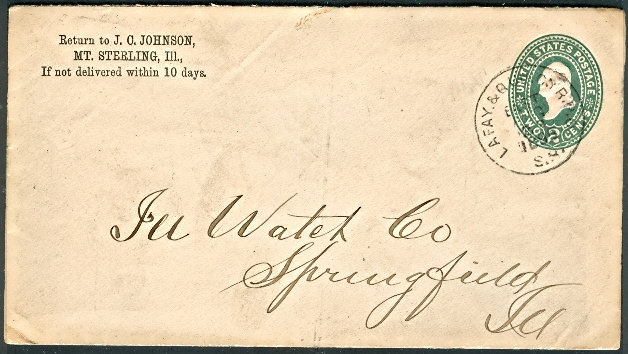 Return to J. C. JOHNSON,
MT. STERLING, Ill.,
If not delivered within 10 days.
UNITED STATES POSTAGE
TWO 2 CENTS
LAFAY. & Q
Ill Watch Co
Springfield
Ill